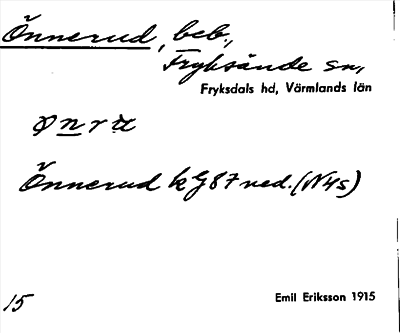 Önnerud, beb.,
Fryksände sn,
Fryksdals hd, Värmlands län
ø n r u
Önnerud kG87 ned. (N4s)
15
Emil Eriksson 1915